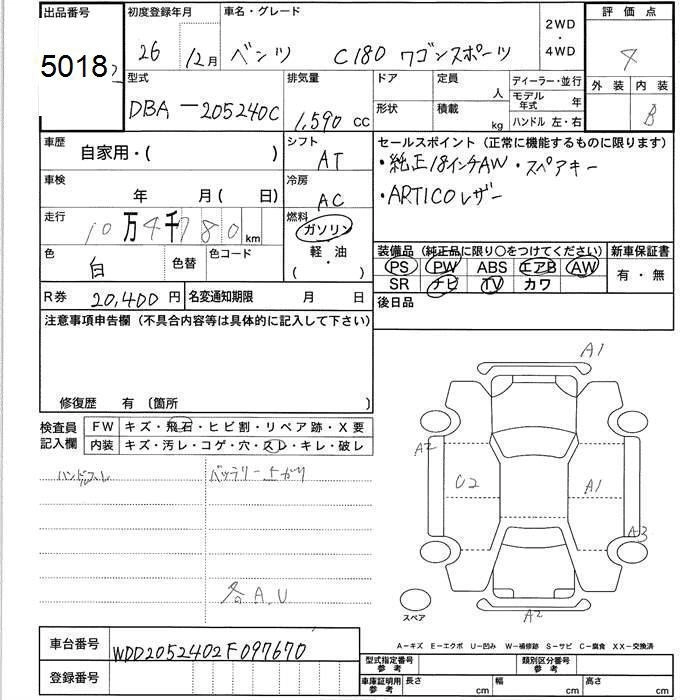 出品番号 初度登録年月 車名・グレード 2WD・4WD 評価点
5018 26 12月 ベンツ C180 ワゴンスポーツ 4
型式 排気量 ドア 定員 人 ディーラー・並行 外装 内装
DBA-205240C 1,590 cc 形状 積載 kg モデル年式 年 B
ハンドル 左・右
車歴 自家用・( ) シフト AT セールスポイント(正常に機能するものに限ります)
・純正18インチAW・スペアキー
車検 年 月( 日) 冷房 AC ・ARTICOレザー
走行 10万4千780km 燃料 ガソリン 軽・油 ( )
色 白 色替 色コード 装備品(純正品に限り○をつけてください) 新車保証書
PS PW ABS エアB AW 有・無
SR ナビ TV カワ
R券 20,400円 名変通知期限 月 日 後日品
注意事項申告欄(不具合内容等は具体的に記入して下さい)
修復歴 有 〔箇所 〕
検査員記入欄 FW キズ・飛石・ヒビ割・リペア跡・X要
内装 キズ・汚レ・コゲ・穴・スレ・キレ・破レ
ハンドルスレ バッテリー上がり
各A,U
A1
A2 U2 A1
A3
A2
スペア
A-キズ E-エクボ U-凹み W-補修跡 S-サビ C-腐食 XX-交換済
車台番号 WDD2052402F097670
登録番号
型式指定番号 参考 類別区分番号 参考
車庫証明用 参考 長さ cm 幅 cm 高さ cm